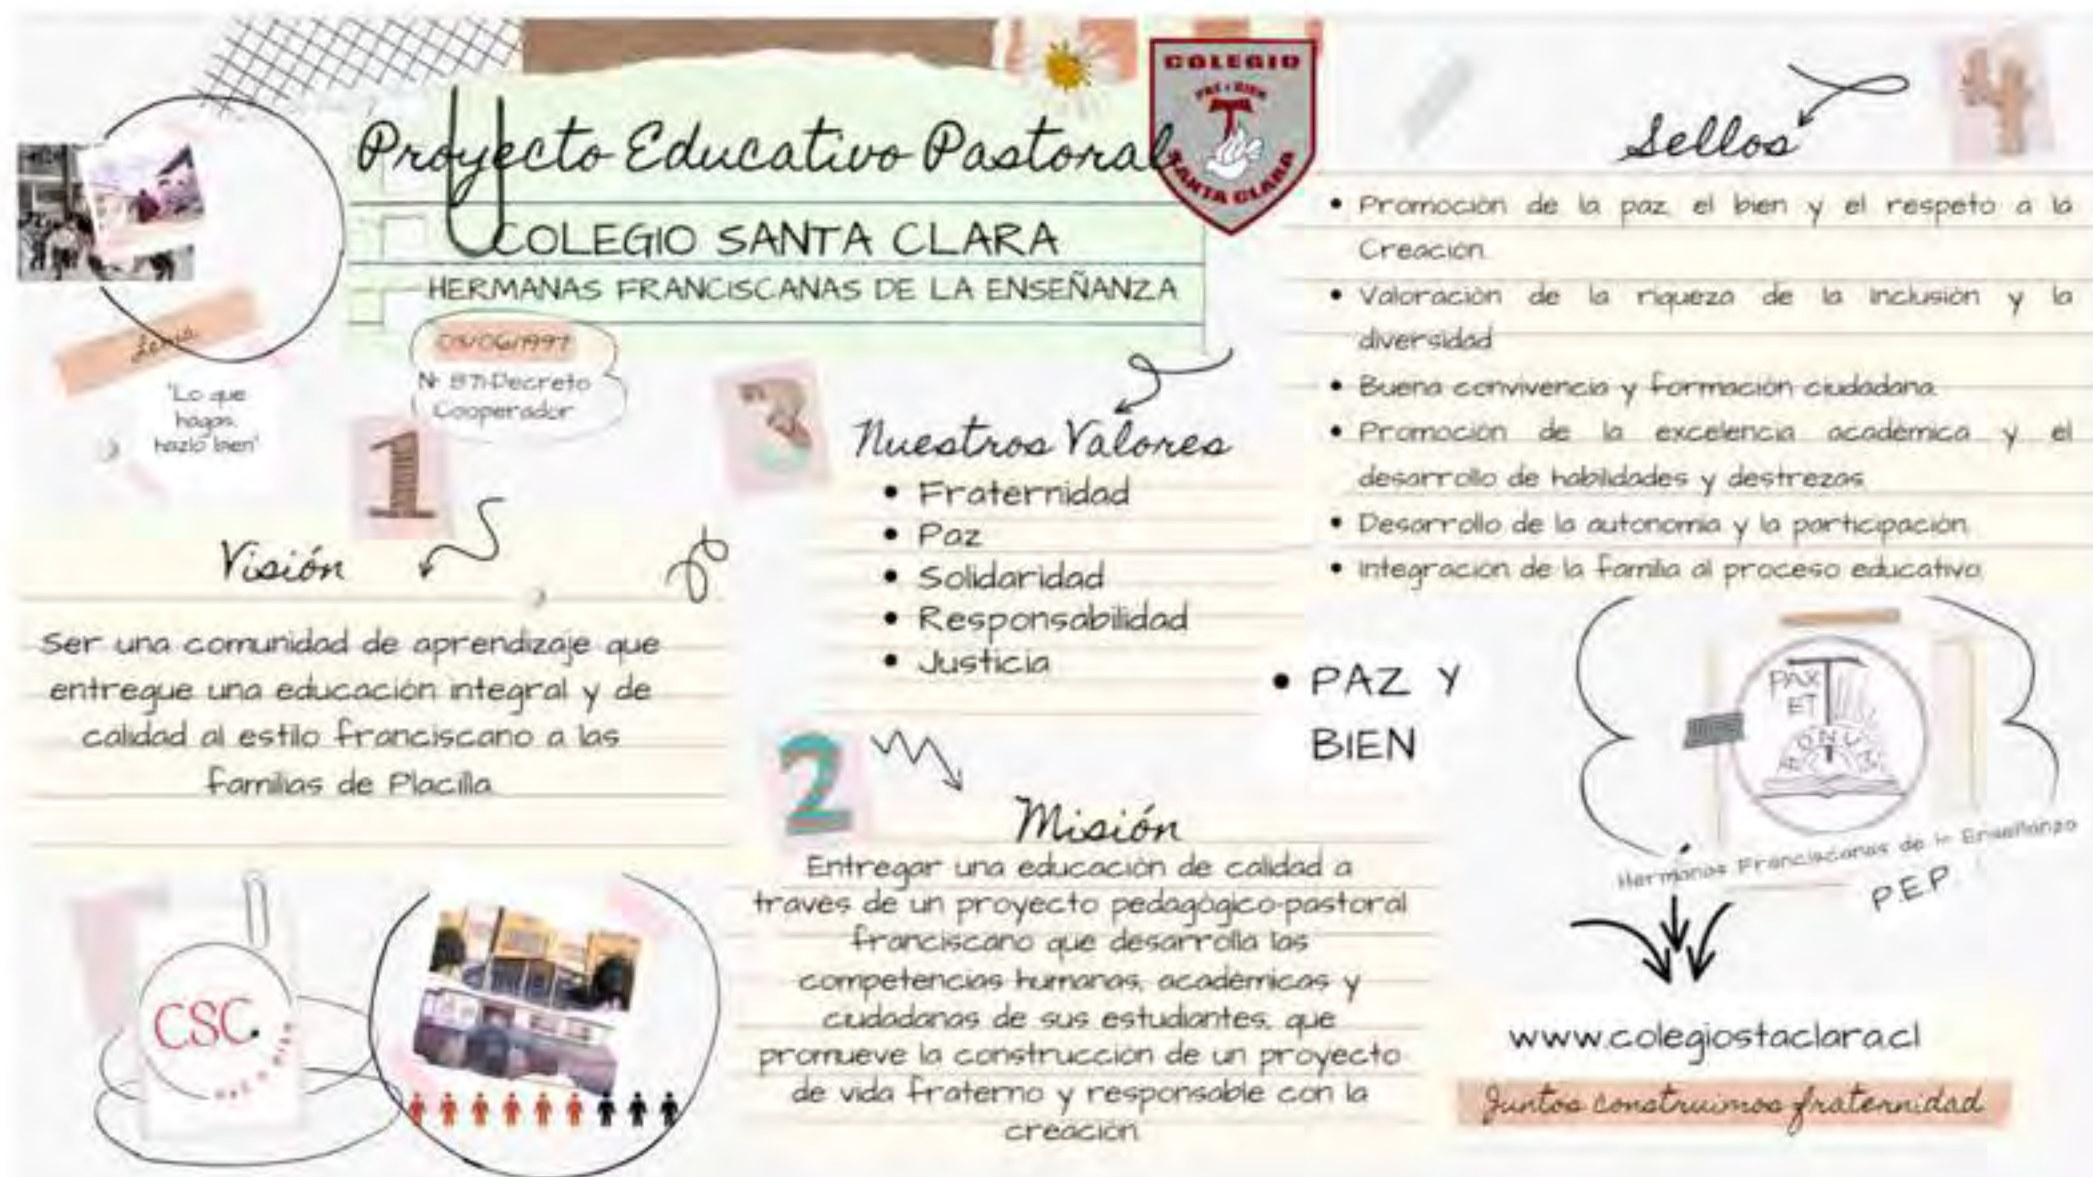 Proyecto Educativo Pastoral
COLEGIO SANTA CLARA
HERMANAS FRANCISCANAS DE LA ENSEÑANZA
COLEGIO
PAZ Y BIEN
SANTA CLARA
Lema
"Lo que
hagas,
hazlo bien"
/06/1997
Decreto
Cooperador
1
Visión
Ser una comunidad de aprendizaje que
entregue una educación integral y de
calidad al estilo franciscano a las
familias de Placilla
CSC
PAZ Y BIEN
2
Misión
Entregar una educación de calidad a
través de un proyecto pedagógico-pastoral
franciscano que desarrolla las
competencias humanas, académicas y
ciudadanas de sus estudiantes, que
promueve la construcción de un proyecto
de vida fraterno y responsable con la
creación
3
Nuestros Valores
• Fraternidad
• Paz
• Solidaridad
• Responsabilidad
• Justicia
4
Sellos
• Promoción de la paz, el bien y el respeto a la
Creación.
• Valoración de la riqueza de la inclusión y la
diversidad
• Buena convivencia y formación ciudadana.
• Promoción de la excelencia académica y el
desarrollo de habilidades y destrezas
• Desarrollo de la autonomía y la participación.
• Integración de la familia al proceso educativo.
• PAZ Y
BIEN
PAX
ET
BONUM
Hermanas Franciscanas de la Enseñanza
P.E.P.
www.colegiostaclara.cl
Juntos construimos fraternidad